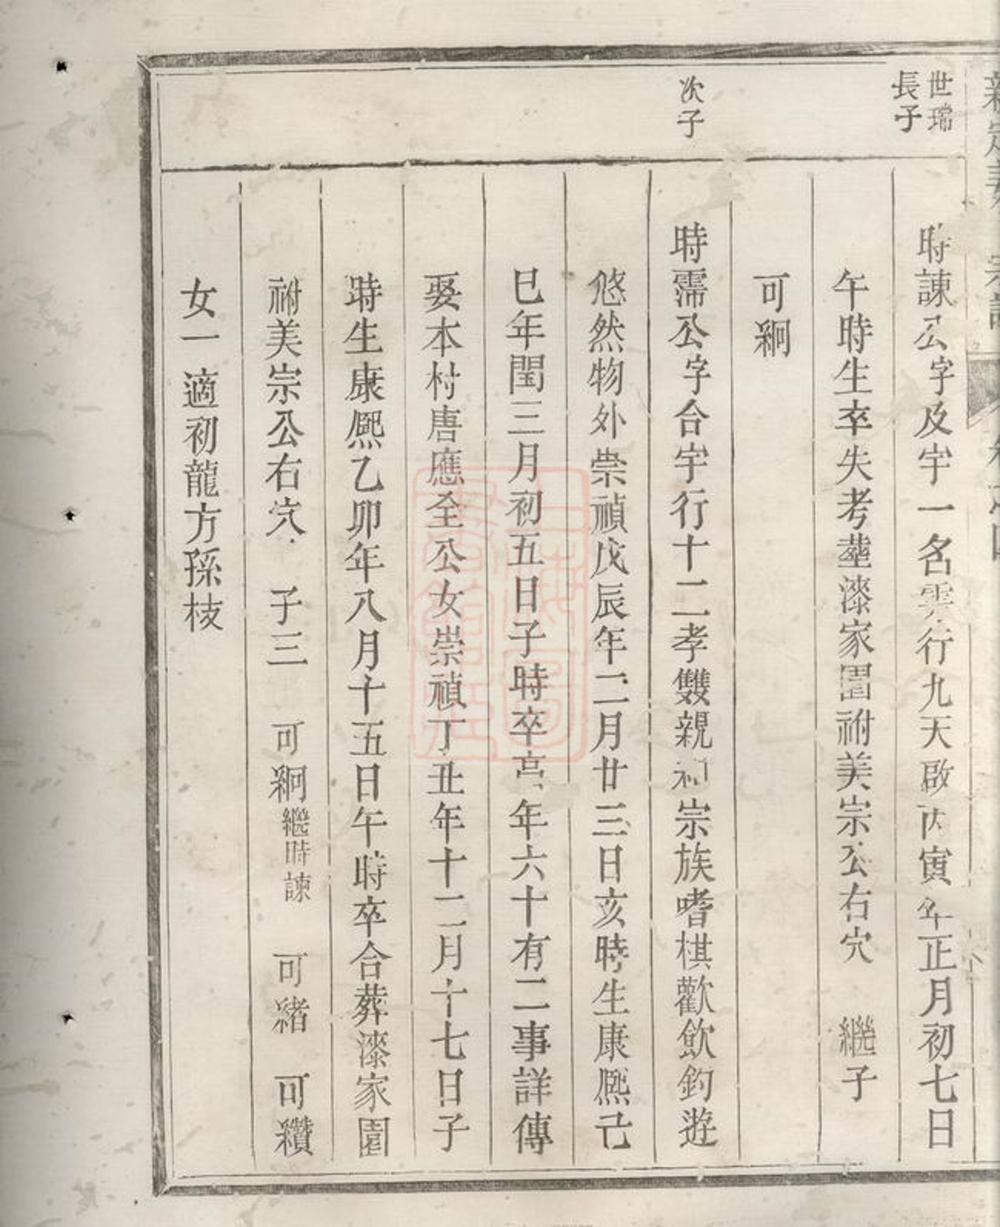 世瑞
長子
時諫公字及宇一名雲行九天啟丙寅年正月初七日
午時生卒失考塟漆家園祔美宗公右穴 繼子
可絅
次子
時霈公字合宇行十二孝雙親和宗族嗜棋歡飲釣遊
悠然物外崇禎戊辰年二月廿三日亥時生康熈己
巳年閏三月初五日子時卒享年六十有二事詳傳
娶本村唐應全公女崇禎丁丑年十二月十七日子
時生康熈乙卯年八月十五日午時卒合葬漆家園
祔美宗公右穴 子三 可絅繼時諫 可緒 可纘
女一適初龍方孫枝